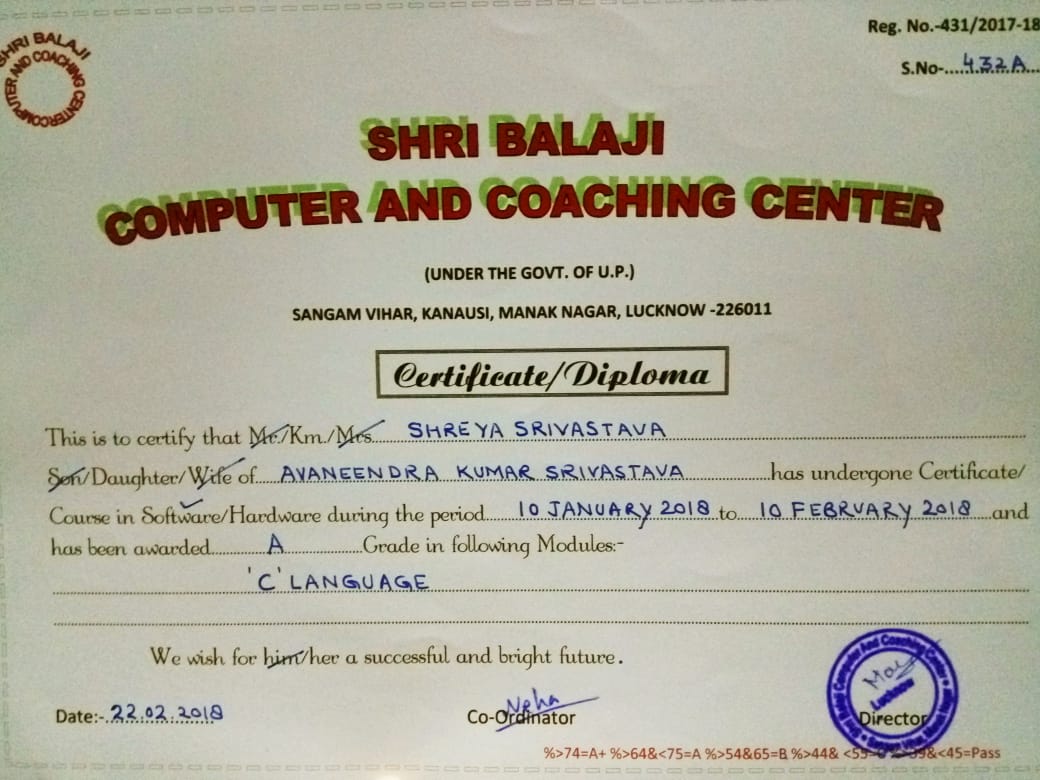 SHRI BALAJI COMPUTER AND COACHING CENTER
Reg. No.-431/2017-18
S.No-.....432A....
SHRI BALAJI
COMPUTER AND COACHING CENTER
(UNDER THE GOVT. OF U.P.)
SANGAM VIHAR, KANAUSI, MANAK NAGAR, LUCKNOW -226011
Certificate/Diploma
This is to certify that Mr./Km./Mrs.... SHREYA SRIVASTAVA
Son/Daughter/Wife of.... AVANEENDRA KUMAR SRIVASTAVA ....has undergone Certificate/
Course in Software/Hardware during the period.... 10 JANUARY 2018 .to.... 10 FEBRVARY 2018 ....and
has been awarded.... A ....Grade in following Modules:-
'C' LANGUAGE
We wish for him/her a successful and bright future.
Date:-.22.02.2018
Neha
Co-Ordinator
Lucknow
Director
%>74=A+ %>64&<75=A %>54&65=B %>44& <55 &<45=Pass